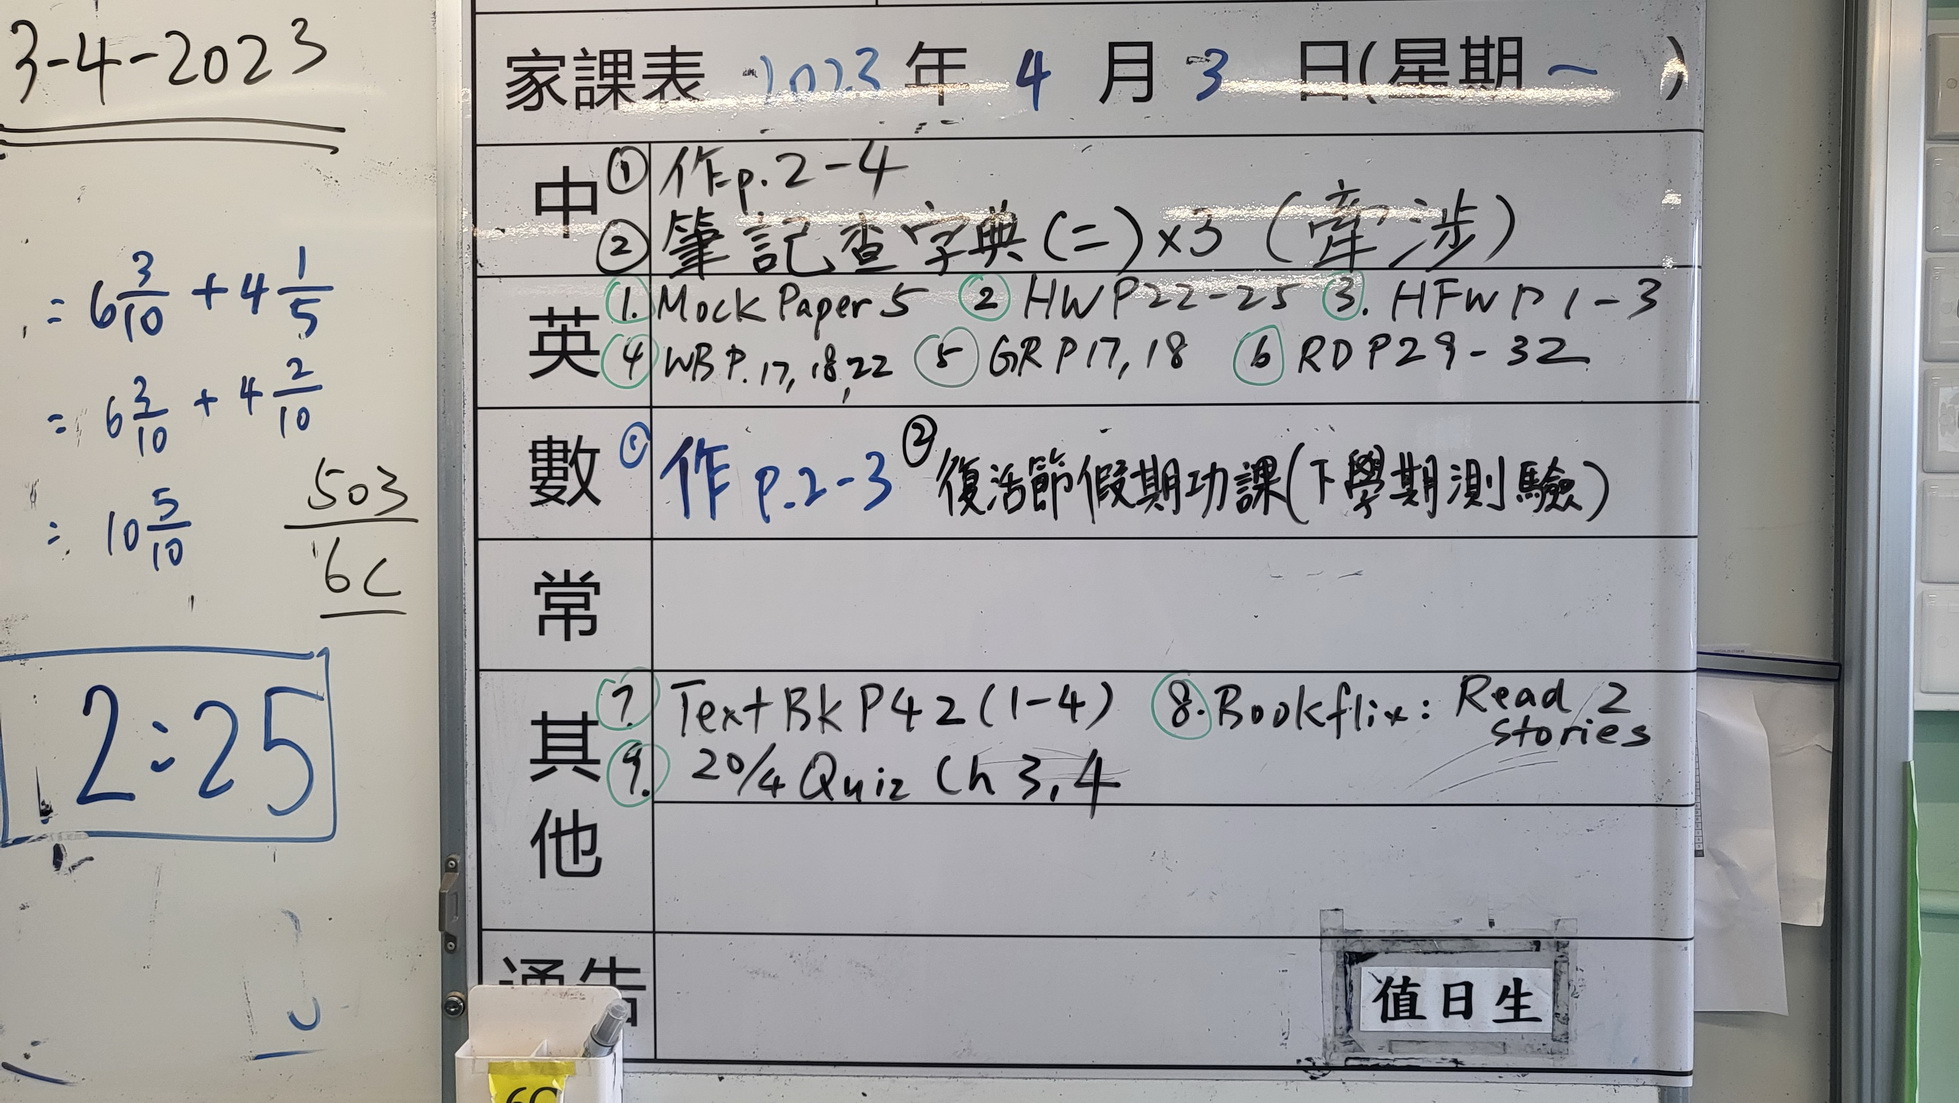 3-4-2023
= 6 3/10 + 4 1/5
= 6 3/10 + 4 2/10
= 10 5/10
503
6C
2:25
家課表 2023 年 4 月 3 日(星期一)
中 ① 作p.2-4
② 筆記查字典(二)×3 (牽涉)
英 1. Mock Paper 5 ② HW P22-25 3. HFW P1-3
④ WB P.17, 18, 22 ⑤ GR P17, 18 ⑥ RD P29-32
數 ① 作 p.2-3 ② 復活節假期功課(下學期測驗)
常
其他 7. Text Bk P42 (1-4) 8. Bookflix: Read 2
stories
9. 20/4 Quiz Ch 3, 4
通告
值日生
6C